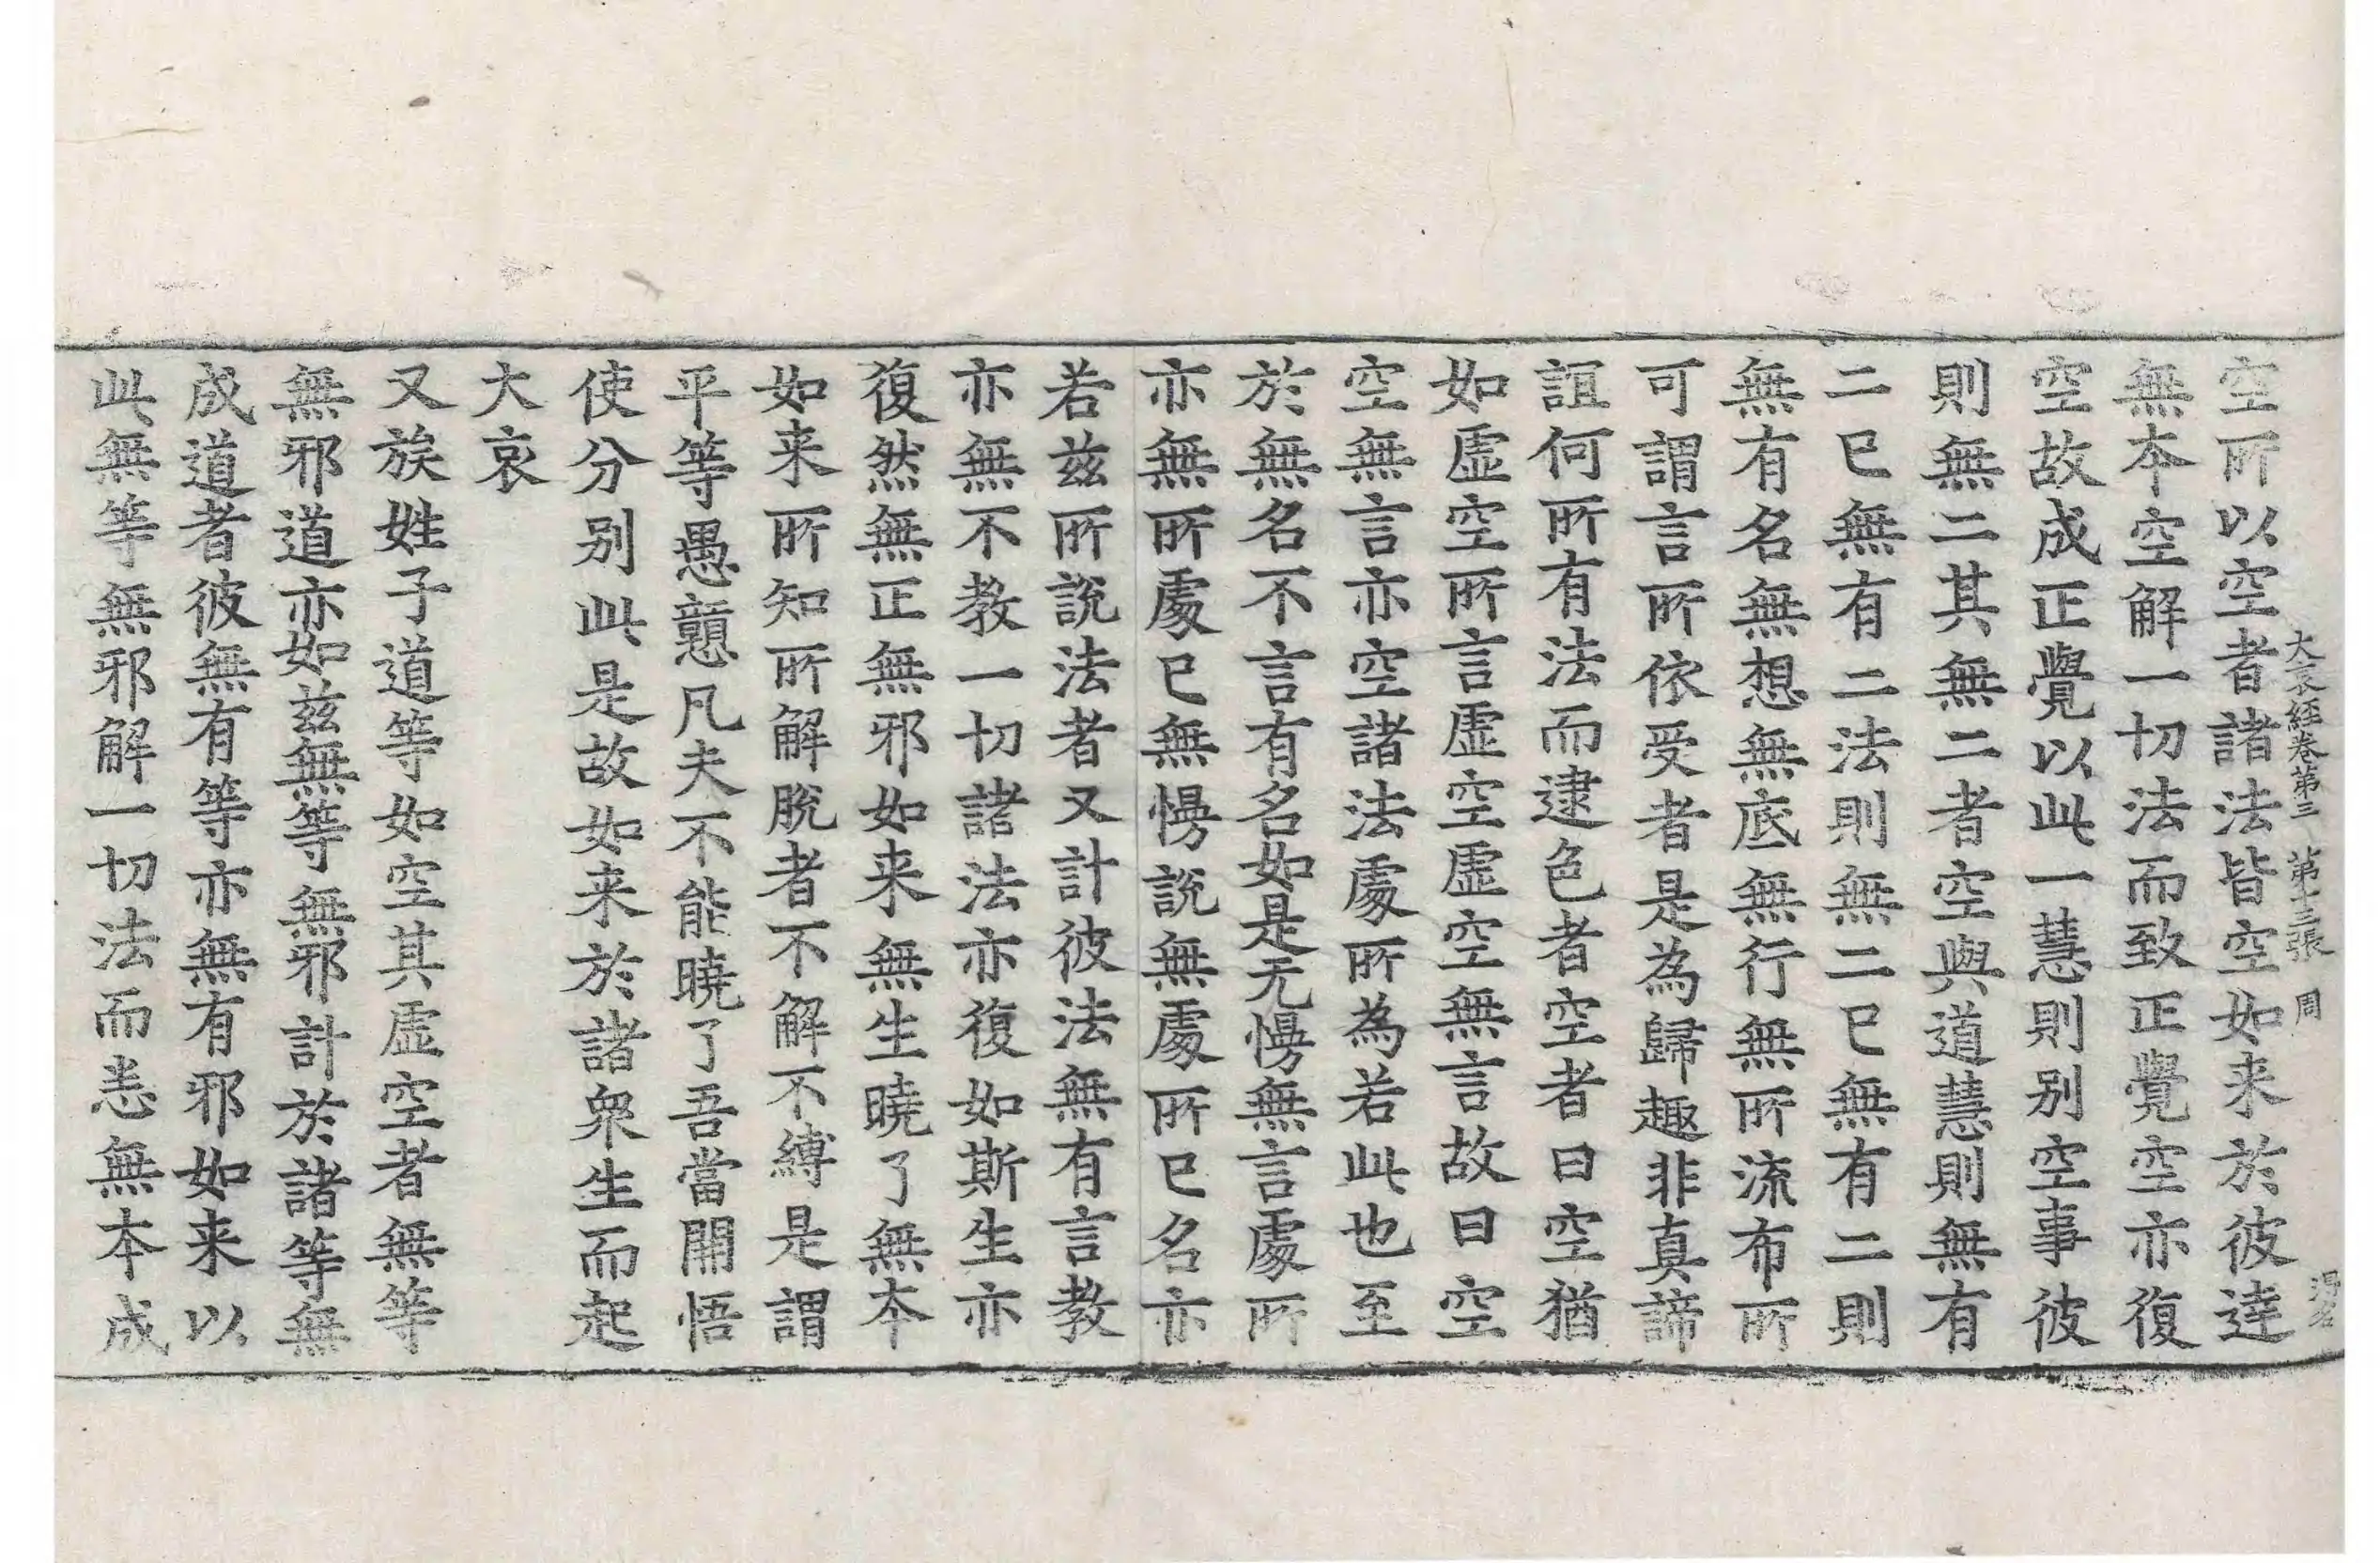 大哀経卷第三 第十三張 周
空所以空者諸法皆空如来於彼達
無本空解一切法而致正覺空亦復
空故成正覺以此一慧則别空事彼
則無二其無二者空與道慧則無有
二巳無有二法則無二巳無有二則
無有名無想無底無行無所流布所
可謂言所依受者是為歸趣非真諦
誼何所有法而逮色者空者曰空猶
如虚空所言虚空虚空無言故曰空
空無言亦空諸法處所為若此也至
於無名不言有名如是无㥬無言處所
亦無所處巳無㥬說無處所巳名亦
若兹所說法者又計彼法無有言教
亦無不教一切諸法亦復如斯生亦
復然無正無邪如来無生曉了無本
如来所知所解脫者不解不縛是謂
平等愚戇凡夫不能曉了吾當開悟
使分别此是故如来於諸衆生而起
大哀
又族姓子道等如空其虚空者無等
無邪道亦如兹無等無邪計於諸等無
成道者彼無有等亦無有邪如来以
此無等無邪解一切法而恙無本成